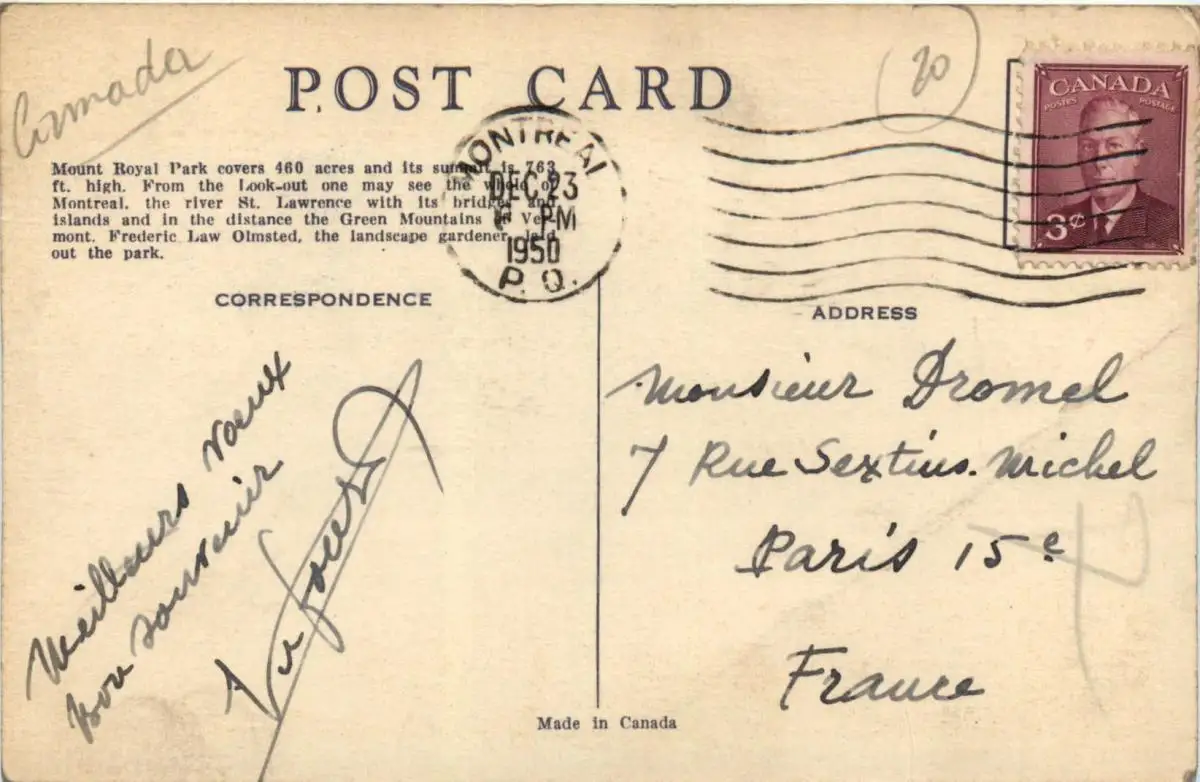 POST CARD
20
CANADA
POSTES POSTAGE
3¢
MONTREAL
DEC 23
PM
1950
P. Q.
Mount Royal Park covers 460 acres and its summit is 763
ft. high. From the Look-out one may see the whole of
Montreal, the river St. Lawrence with its bridges and
islands and in the distance the Green Mountains of Ver-
mont. Frederic Law Olmsted, the landscape gardener, laid
out the park.
CORRESPONDENCE
Meilleurs vœux
bon souvenir
ADDRESS
Monsieur Dromel
7 Rue Sextius. Michel
Paris 15e
France
Made in Canada